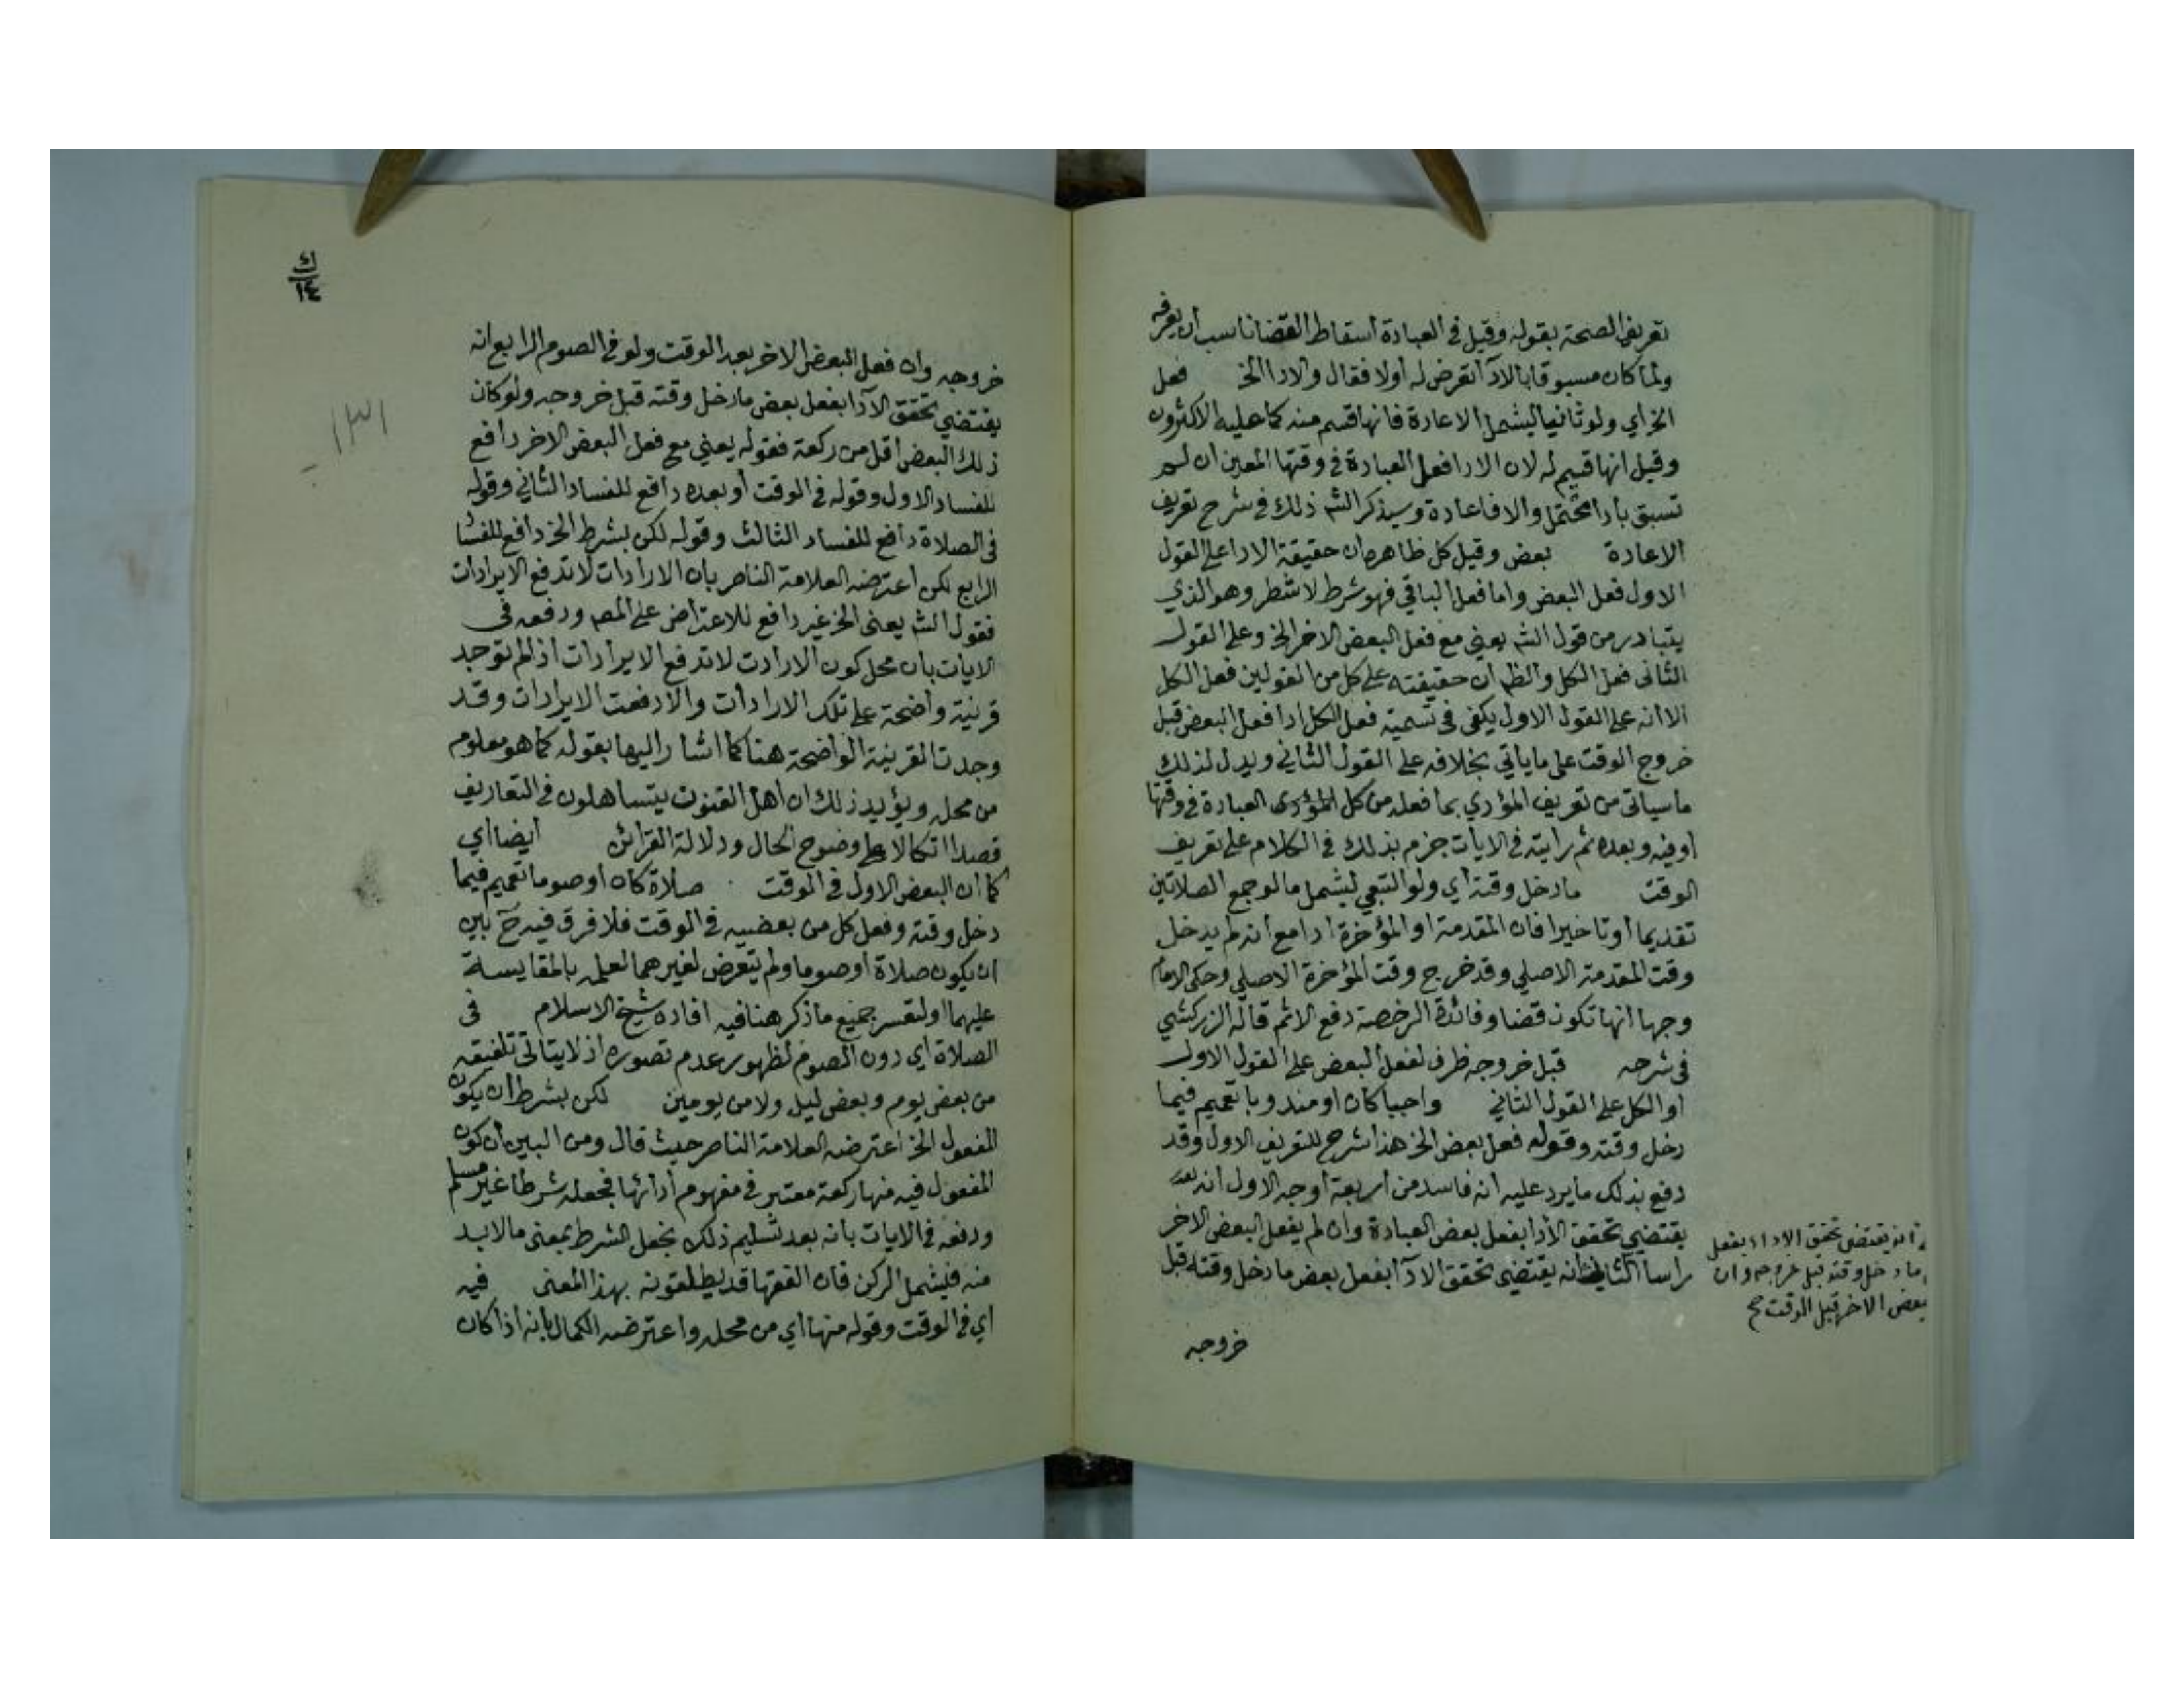 تعريف الصحة بقوله وقيل في العبادة اسقاط القضا ناسب أن يعرفه
ولما كان مسبوقا بالادآ تعرض له أولا فقال والادا الخ فعل
الخ اي ولو ثانيا ليشمل الاعادة فانها قسم منه كما عليه الاكثرون
وقيل انها قسيم له لان الادا فعل العبادة في وقتها المعين ان لم
تسبق بأدا مختل والا فاعادة وسيذكر الشه ذلك في شرح تعريف
الاعادة بعض وقيل كل ظاهره ان حقيقة الادا على القول
الاول فعل البعض واما فعل الباقي فهو شرط لا شطر وهو الذي
يتبادر من قول الشه يعني مع فعل البعض الاخر الخ وعلى القول
الثاني فعل الكل والظه ان حقيقته على كل من القولين فعل الكل
الا انه على القول الاول يكفى في تسمية فعل الكل ادا فعل البعض قبل
خروج الوقت على ما ياتي بخلافه على القول الثاني ويدل لذلك
ما سياتى من تعريف المؤدي بما فعل من كل المؤدى العبادة في وقتها
او فيه وبعده ثم رايته في الايات جزم بذلك في الكلام على تعريف
الوقت ما دخل وقته أي ولو التبعي ليشمل ما لو جمع الصلاتين
تقديما أو تاخيرا فان المقدمة او المؤخرة ادا مع أنه لم يدخل
وقت المقدمة الاصلي وقد خرج وقت المؤخرة الاصلي وحكى الامام
وجها انها تكون قضا وفائدة الرخصة دفع الاثم قاله الزركشي
في شرحه قبل خروجه ظرف لفعل البعض على القول الاول
او الكل على القول الثاني واجبا كان او مندوبا تعميم فيما
دخل وقته وقوله فعل بعض الخ هذا شرح للتعريف الاول وقد
دفع بذلك ما يرد عليه أنه فاسد من أربعة أوجه الاول أنه
يقتضي تحقق الأدا بفعل بعض العبادة وان لم يفعل البعض الاخر
راسا الثاني انه يقتضى تحقق الادآ بفعل بعض ما دخل وقته قبل
انه يقتضى تحقق الاداء بفعل
ما دخل وقته قبل خروجه وان
بعض الاخر قبل الوقت صح
خروجه
١٣١
خروجه وان فعل البعض الاخر بعد الوقت ولو في الصوم الرابع انه
يقتضي تحقق الادآ بفعل بعض ما دخل وقته قبل خروجه ولو كان
ذلك البعض اقل من ركعة فقوله يعني مع فعل البعض الاخر دافع
للفساد الاول وقوله في الوقت أو بعده دافع للفساد الثاني وقوله
في الصلاة دافع للفساد الثالث وقوله لكن بشرط الخ دافع للفسا
الرابع لكن اعترضه العلامة الناصر بان الارادات لا تدفع الايرادات
فقول الشه يعنى الخ غير دافع للاعتراض على المصه ودفعه فى
الايات بان محل كون الارادت لا تدفع الايرادات اذا لم توجد
قرينة واضحة على تلك الارادات والا دفعت الايرادات وقد
وجدت القرينة الواضحة هنا كما اشار اليها بقوله كما هو معلوم
من محله ويؤيد ذلك ان اهل الفنون يتساهلون في التعاريف
قصدا اتكالا على وضوح الحال ودلالة القرائن ايضا أي
كما ان البعض الاول في الوقت صلاة كان او صوما تعميم فيما
دخل وقته وفعل كل من بعضيه في الوقت فلا فرق فيه ح بين
ان يكون صلاة أو صوما ولم يتعرض لغيرهما لعلمه بالمقايسة
عليهما أو لتقسر جميع ما ذكر هنا فيه افاده شيخ الاسلام فى
الصلاة اي دون الصوم لظهور عدم تصوره اذ لا يتاتى تلفيقه
من بعض يوم وبعض ليل ولا من يومين لكن بشرط ان يكون
المفعول الخ اعترضه العلامة الناصر حيث قال ومن البين ان كون
المفعول فيه منها ركعة معتبر في مفهوم أدائها فجعله شرطا غير مسلم
ودفعه في الايات بانه بعد تسليم ذلك نجعل الشرط بمعنى ما لا بد
منه فيشمل الركن فان الفقها قد يطلقونه بهذا المعنى فيه
اي في الوقت وقوله منها اي من محله واعترضه الكمال بانه اذا كان